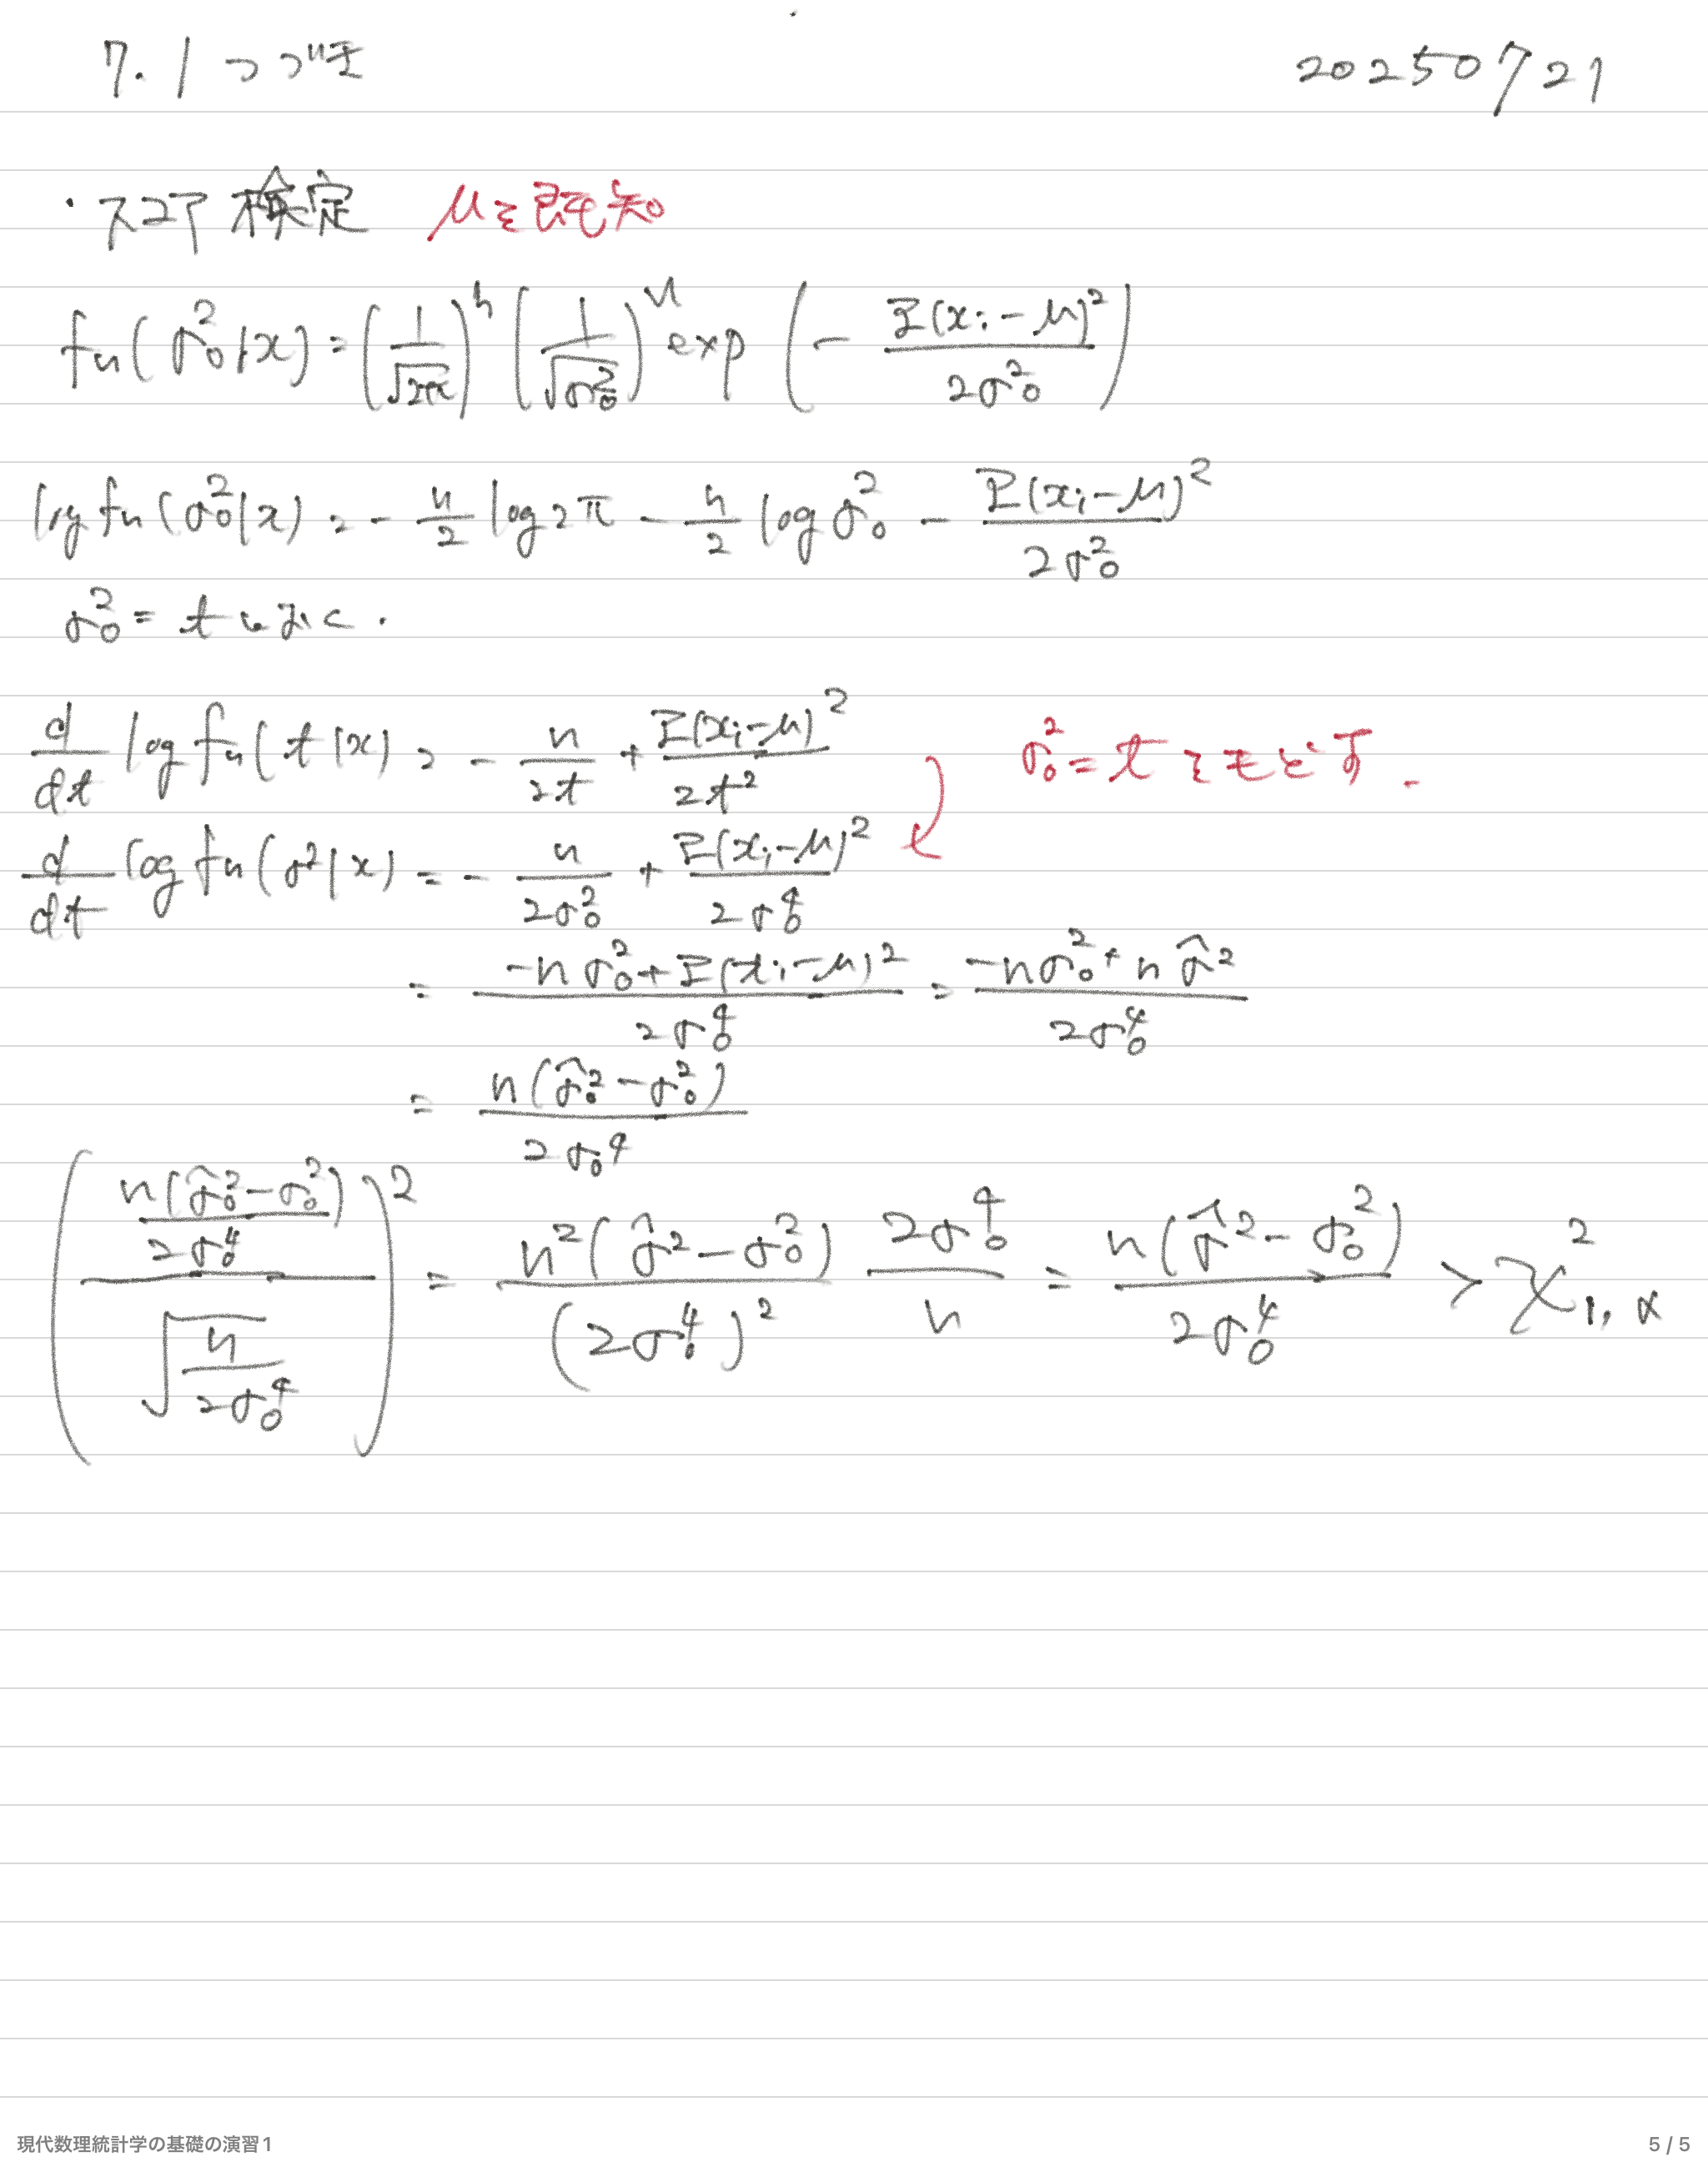 7.1 つづき 20250721
・スコア検定 μを既知
fn(σ₀²|x) = (1/√2π)ⁿ (1/√σ₀²)ⁿ exp(- Σ(xᵢ-μ)²/2σ₀²)
log fn(σ₀²|x) = - n/2 log 2π - n/2 log σ₀² - Σ(xᵢ-μ)²/2σ₀²
σ₀² = t とおく.
d/dt log fn(t|x) = - n/2t + Σ(xᵢ-μ)²/2t² σ₀² = t をもどす.
d/dt log fn(σ²|x) = - n/2σ₀² + Σ(xᵢ-μ)²/2σ₀⁴
= (-nσ₀² + Σ(xᵢ-μ)²)/2σ₀⁴ = (-nσ₀² + nσ̂²)/2σ₀⁴
= n(σ̂₀² - σ₀²)/2σ₀⁴
((n(σ̂₀² - σ₀²)/2σ₀⁴)/√(n/2σ₀⁴))² = n²(σ̂² - σ₀²)/(2σ₀⁴)² 2σ₀⁴/n = n(σ̂² - σ₀²)/2σ₀⁴ > χ²₁,α
現代数理統計学の基礎の演習1 5 / 5